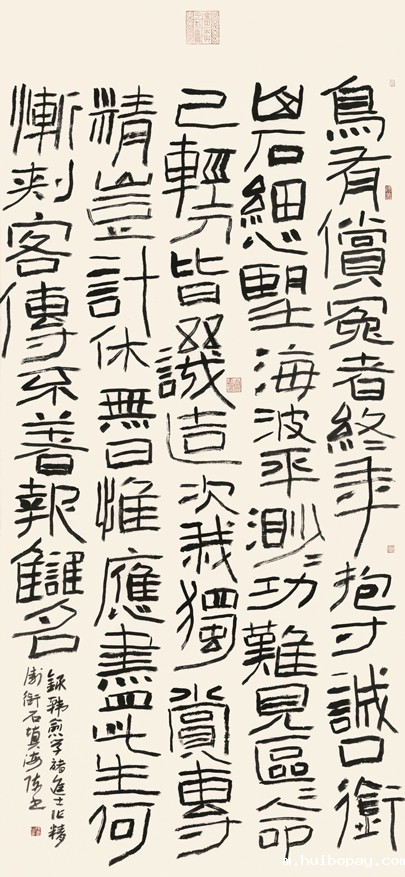 鳥有償冤者終年抱寸誠口銜
山石細心望海波平渺〻功難見區〻命
已輕人皆譏造次我獨賞專
精豈計休無日惟應盡此生何
慚刺客傳不著報讎名
錄韓愈學諸進士作精
衛銜石填海
m.huibopay.com